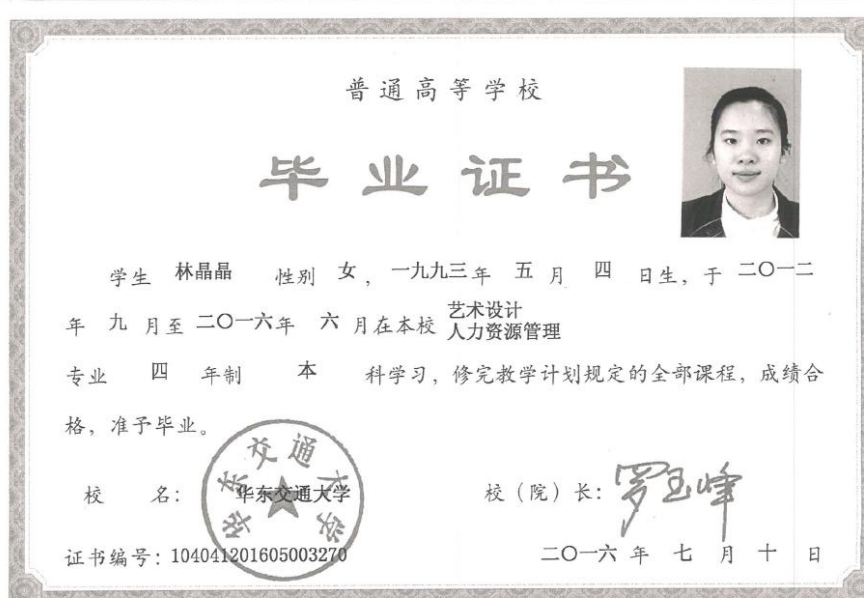 普通高等学校
毕业证书
学生 林晶晶 性别 女，一九九三年 五 月 四 日生，于 二〇一二
年 九 月至 二〇一六年 六 月在本校 艺术设计
人力资源管理
专业 四 年制 本 科学习，修完教学计划规定的全部课程，成绩合
格，准予毕业。
华东交通大学
校 名： 华东交通大学 校（院）长：罗玉峰
证书编号：104041201605003270 二〇一六 年 七 月 十 日